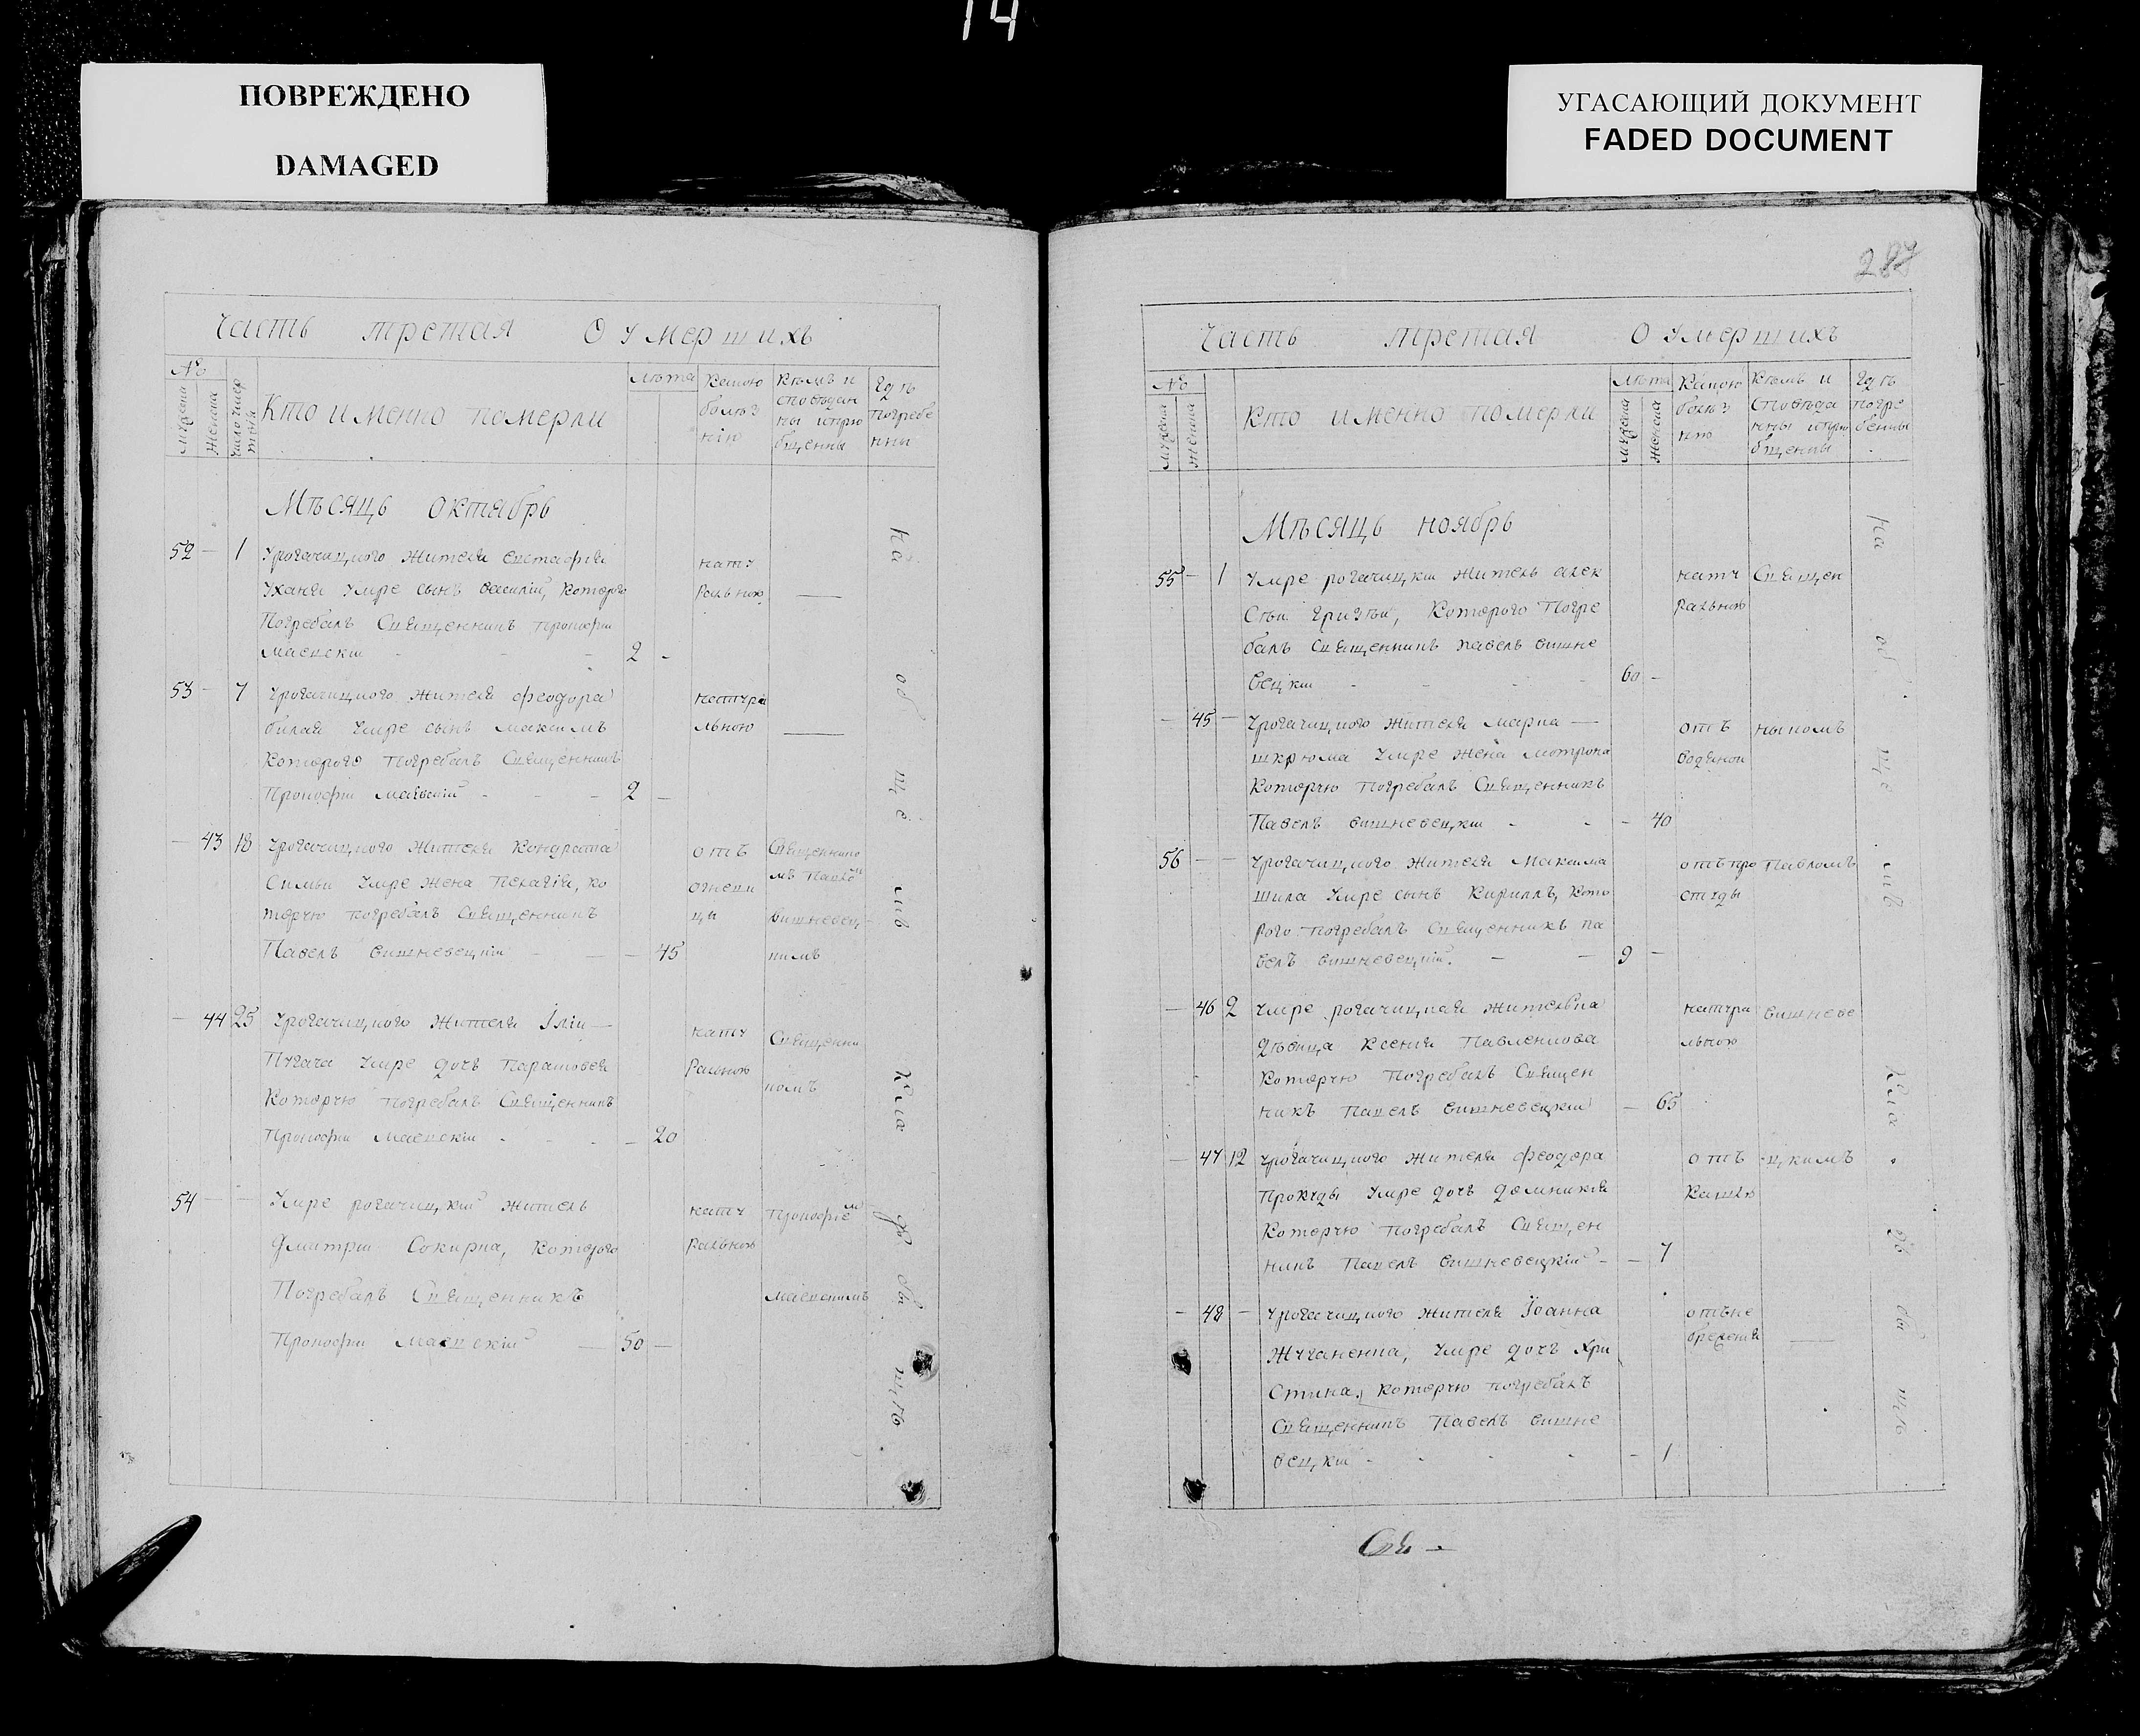 14
ПОВРЕЖДЕНО
DAMAGED
УГАСАЮЩИЙ ДОКУМЕНТ
FADED DOCUMENT
Часть третая О Умершихъ
№
мужеска
женска
число умер
Кто именно померли
лѣта
Какою
болѣз
нію
Кѣмъ и
сповѣдан
ны и прио
бщенны
Гдѣ
погребе
нны
Мѣсяцъ октябрь
52 — 1 Урогачицкого жителя евстафия
Уханя Умре сынъ василій, которого
Погребалъ Священникъ прокофии
Маевскии - - - 2 -
нату
ральною —
53 — 7 Урогачицкого жителя феодора
билая Умре сынъ максимъ
которого погребалъ Священникъ
Прокофии маевский - - - 2 -
натура
льною —
— 43 18 Урогачицкого жителя кондрата
Умре жена Пелагія, ко
торую погребалъ Священникъ
Павелъ вишневецкій - - - 45
отъ
огневи
цы
Священнико
мъ Павло
вишневец
кимъ
— 44 25 Урогачицкого жителя Іліи —
Пугача Умре дочъ Парасковея
Которую погребалъ Священникъ
Прокофии Маевскіи - - - 20
нату
ральною
Священни
комъ
54 — — Умре рогачицкий житель
Дмитрии Сокирка, которого
Погребалъ Священникъ
Прокофии Маевский — 50 —
нату
ральною
Прокофіем
маевскимъ
На об ще мъ кла дб ищѣ
287
Часть третая О Умершихъ
№
мужеска
женска
Кто именно померли
лѣта
мужеска
женска
Какою
болѣз
нію
Кѣмъ и
сповѣда
нны и прио
бщенны
Гдѣ
погре
бенны
Мѣсяцъ ноябрь
55 — 1 Умре рогачицкии житель алек
Сѣи Гризѣи, Которого погре
балъ Священникъ павелъ вишне
вецкии - - - - 60 -
нату
ральною
Священ
— 45 — Урогачицкого жителя марка —
шкрюма Умре жена мотрона
которую погребалъ Священникъ
Павелъ вишневецкии - - - 40
отъ
водяной
никомъ
56 — — Урогачицкого жителя Максима
шила Умре сынъ Кириллъ, кото
рого погребалъ Священникъ па
велъ вишневецкий. — — 9 —
отъ про
студы
Павломъ
— 46 2 Умре рогачицкая жителька
дѣвица Ксения Павленкова
которую погребалъ Священ
никъ Павелъ вишневецкии — 65
натура
льною
вишневе
— 47 12 Урогачицкого жителя феодора
Прокуды Умре дочъ домникия
которую погребалъ Священ
никъ Павелъ вишневецкий - — 7
отъ
кашлю
цкимъ
— 48 — Урогачицкого жителя Іоанна
Жуганенка, Умре дочъ Хри
стина, которую погребалъ
Священникъ Павелъ вишне
вецкии - - - - — 1
отъ не
брежения —
На об ще мъ кла дб ищѣ